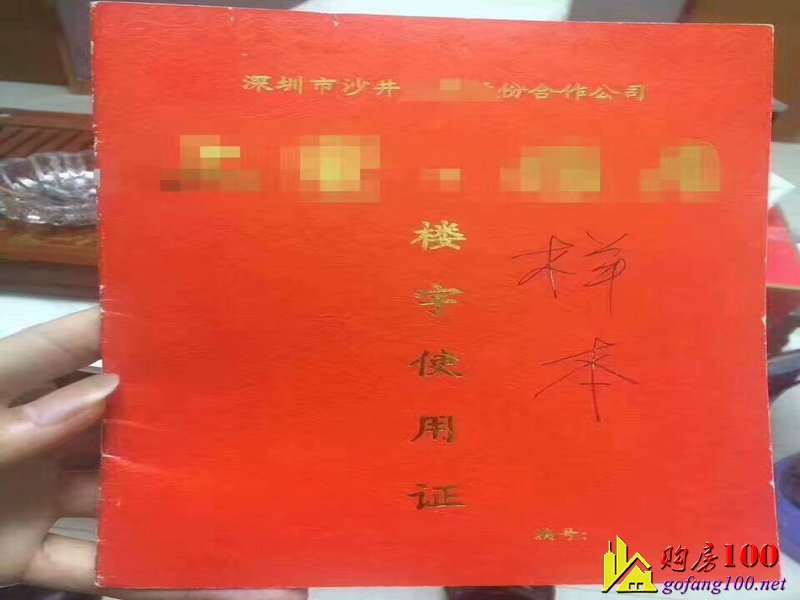 深圳市沙井
份合作公司
楼宇使用证
样本
编号:
购房100
gofang100.net